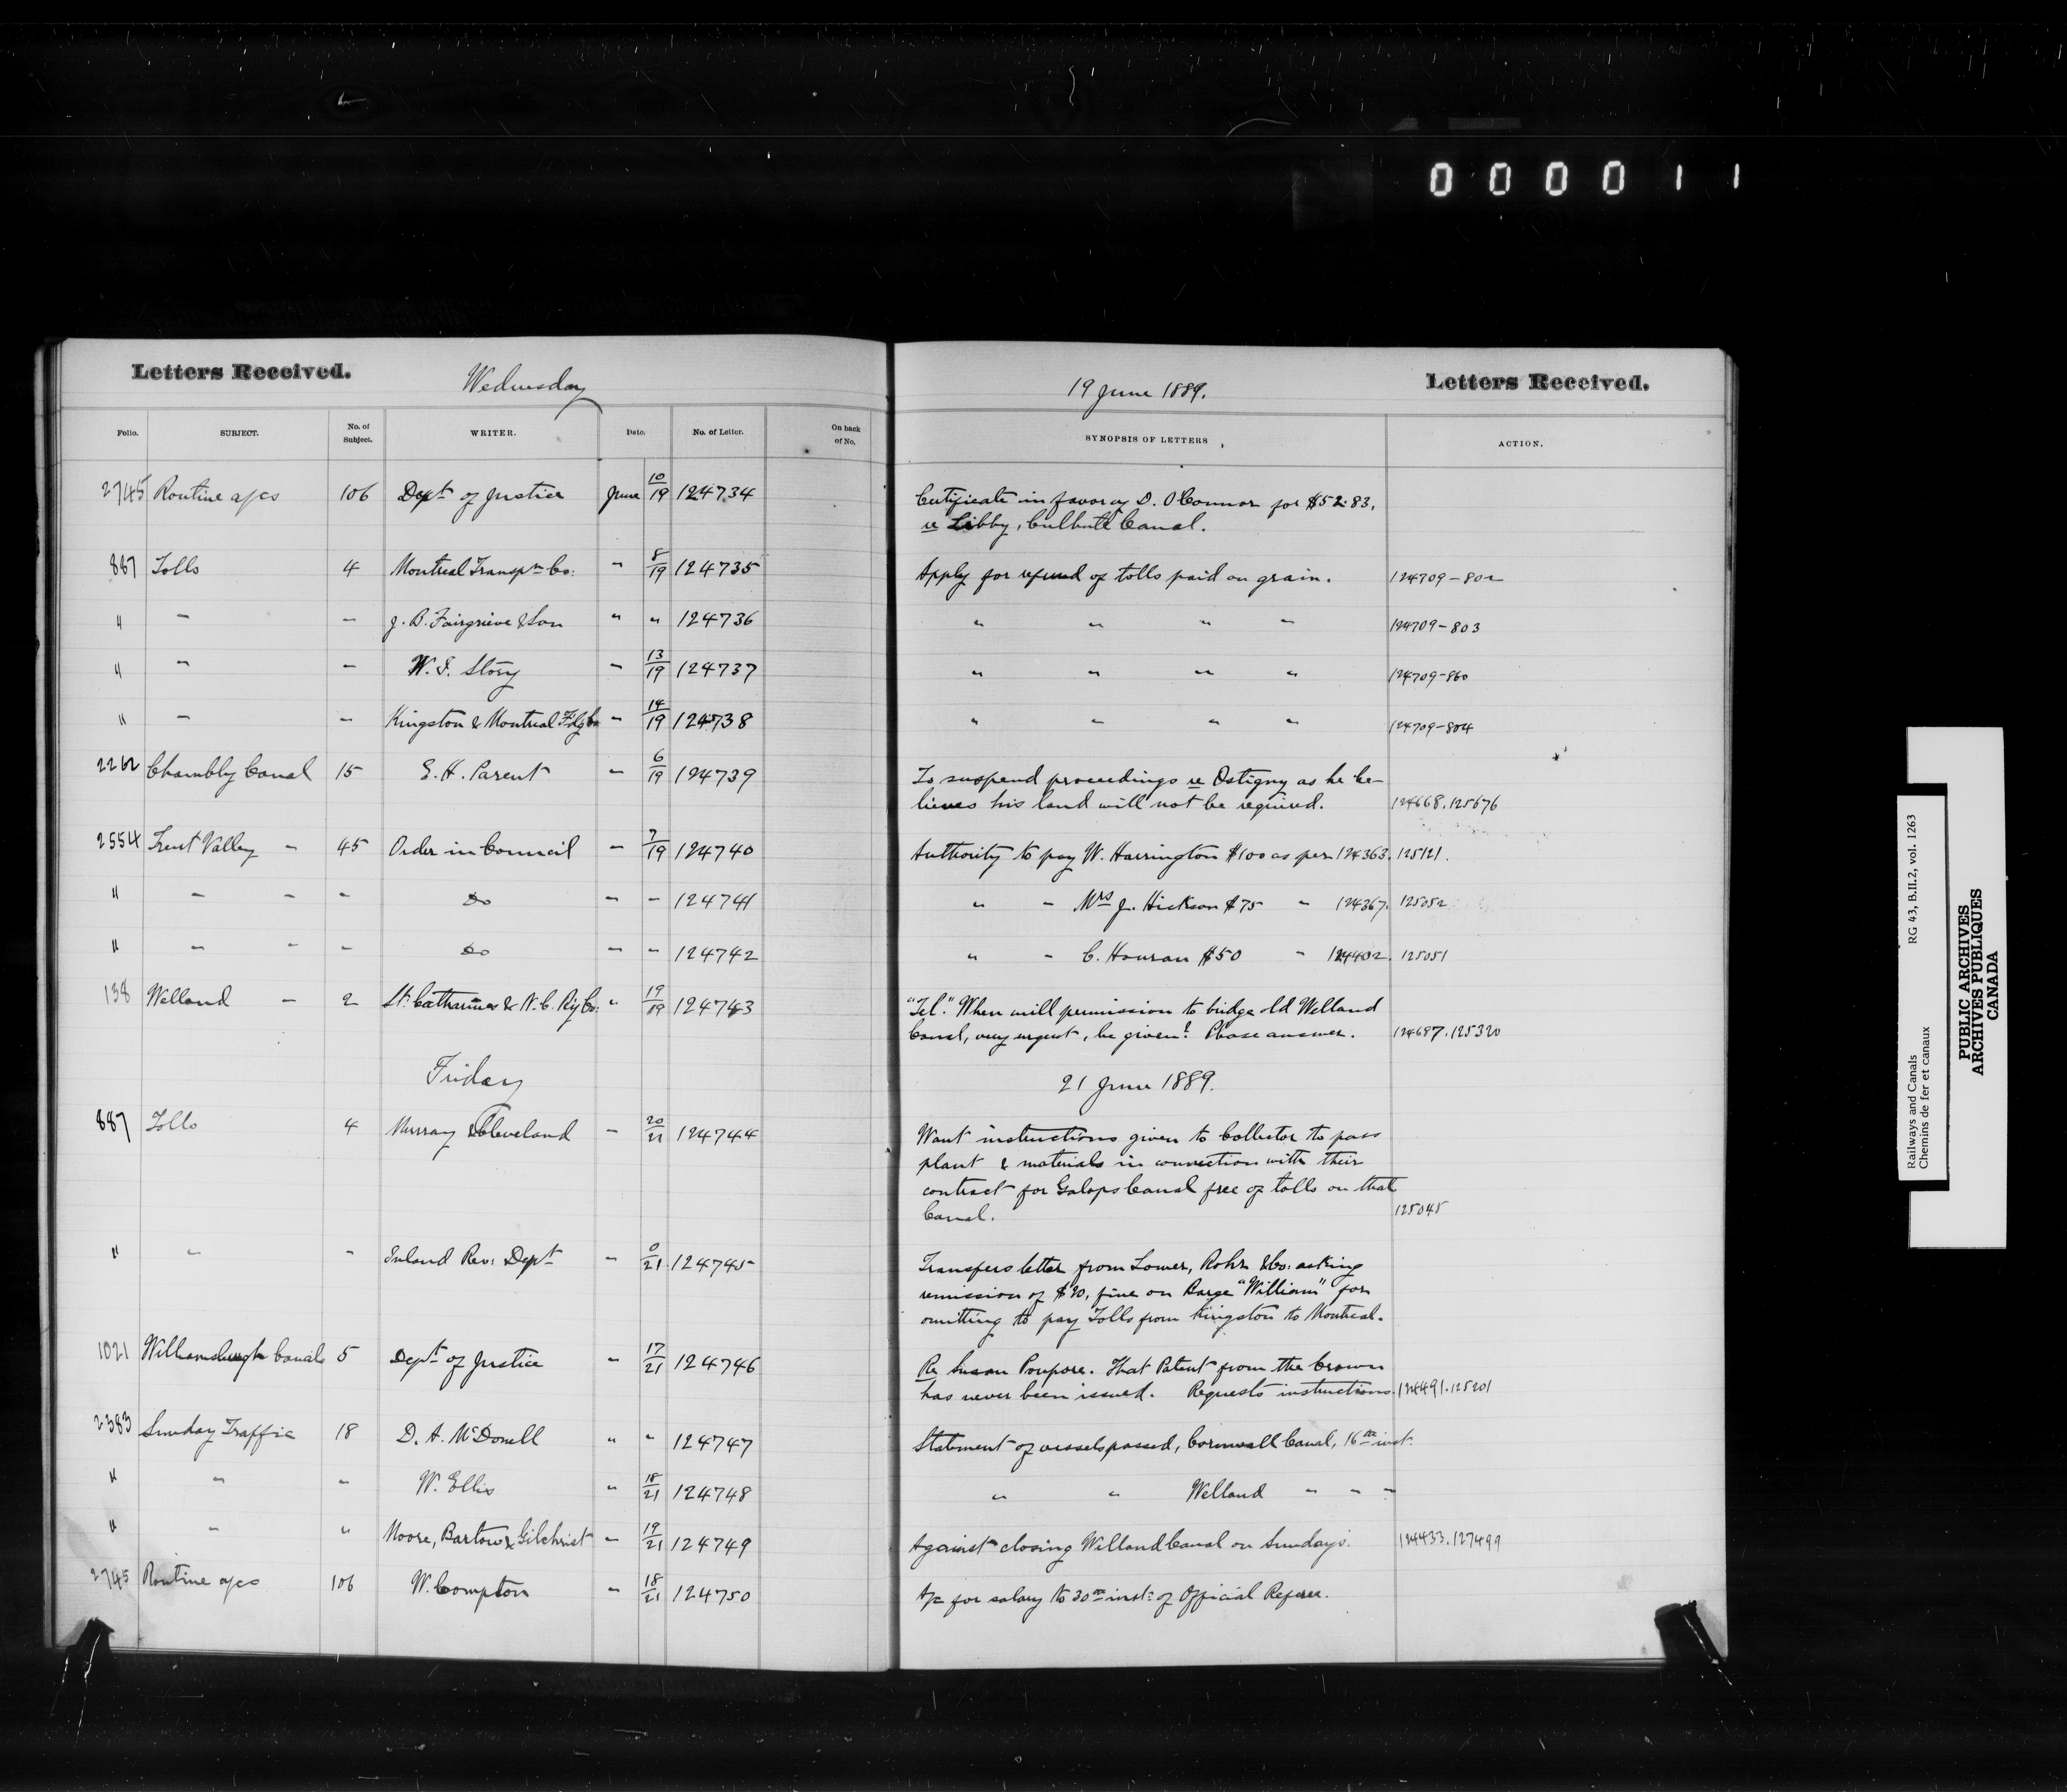 000011
Letters Received. Wednesday 19 June 1889. Letters Received.
Folio. SUBJECT. No. of Subject. WRITER. Date. No. of Letter. On back of No. SYNOPSIS OF LETTERS ACTION.
2745 Routine a/cs 106 Dept of Justice June 10/19 124734 Certificate in favor of D. O'Connor for $52.83,
re Libby, Culbute Canal.
887 Tolls 4 Montreal Transpn Co: " 8/19 124735 Apply for refund of tolls paid on grain. 124709-802
" " " J. B. Fairgrieve & Son " " 124736 " " " " 124709-803
" " " W. J. Story " 13/19 124737 " " " " 124709-860
" " " Kingston & Montreal Fdg Co " 14/19 124738 " " " " 124709-804
2262 Chambly Canal 15 E. H. Parent " 6/19 124739 To suspend proceedings re Ostigny as he be-
lieves his land will not be required. 124668.125676
2554 Trent Valley " 45 Order in Council " 7/19 124740 Authority to pay W. Harrington $100 as per 124363. 125121.
" " " " Do " " 124741 " " Mrs J. Hickson $75 " 124367. 125052
" " " " Do " " 124742 " " C. Houran $50 " 124402. 125051
138 Welland " 2 St. Catharines & N. C. Ry Co: " 19/19 124743 "Tel." When will permission to bridge old Welland
Canal, very urgent, be given? Please answer. 124687.125320
Friday 21 June 1889.
887 Tolls 4 Murray & Cleveland " 20/21 124744 Want instructions given to Collector to pass
plant & materials in connection with their
contract for Galops Canal free of tolls on that
Canal. 125045
" " " Inland Rev: Dept " 0/21 124745 Transfers letter from Lower, Rohr & Co: asking
remission of $20, fine on Barge "William" for
omitting to pay Tolls from Kingston to Montreal.
1021 Williamsburgh Canals 5 Dept of Justice " 17/21 124746 Re Susan Poupore. That Patent from the Crown
has never been issued. Requests instructions. 124491.125201
2383 Sunday Traffic 18 D. A. McDonell " " 124747 Statement of vessels passed, Cornwall Canal, 16th inst.
" " " W. Ellis " 18/21 124748 " " Welland " " "
" " " Moore, Bartow & Gilchrist " 19/21 124749 Against closing Welland Canal on Sundays. 124433.127499
2745 Routine a/cs 106 W. Compton " 18/21 124750 A/c for salary to 30th inst: of Official Referee.
Railways and Canals RG 43, B.II.2, vol. 1263
Chemins de fer et canaux
PUBLIC ARCHIVES
ARCHIVES PUBLIQUES
CANADA